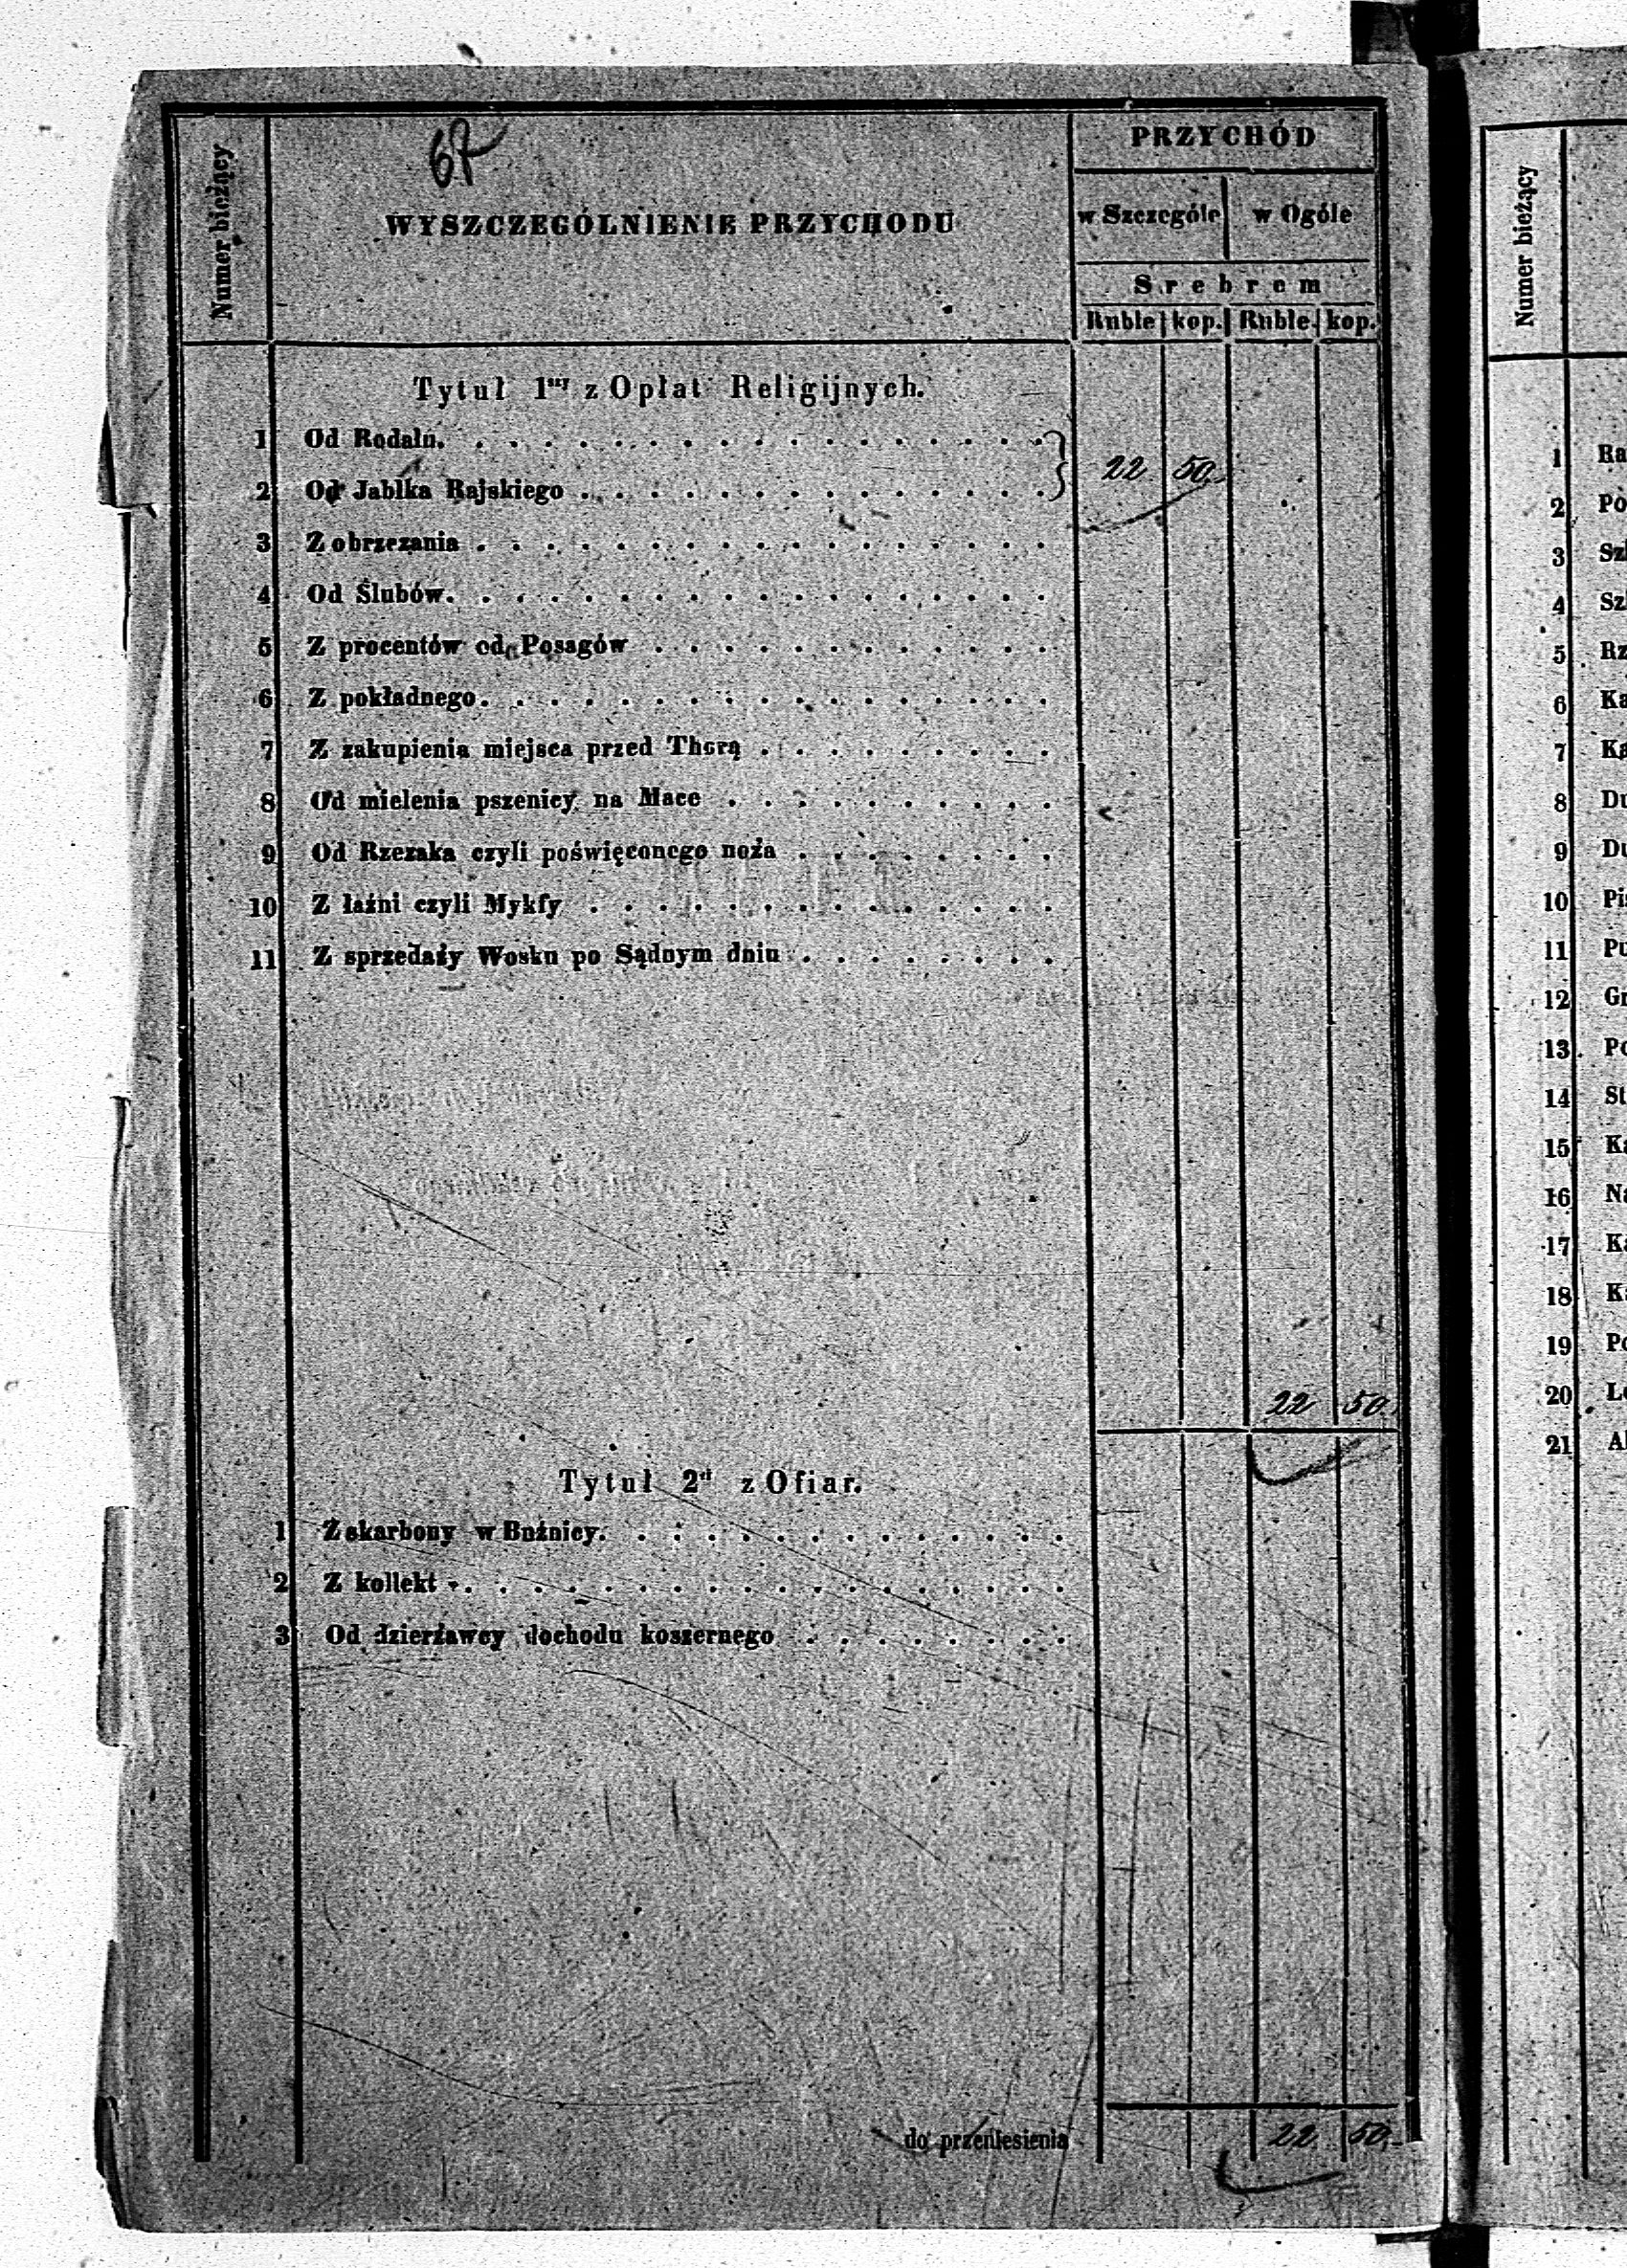 67
Numer bieżący
WYSZCZEGÓLNIENIE PRZYCHODU
PRZYCHÓD
w Szczególe w Ogóle
Srebrem
Ruble kop. Ruble. kop.
Tytuł 1ny z Opłat Religijnych.
1 Od Rodału.
22 50
2 Od Jabłka Rajskiego
3 Z obrzezania
4 Od Ślubów.
5 Z procentów od Posagów
6 Z pokładnego.
7 Z zakupienia miejsca przed Thorą
8 Od mielenia pszenicy na Mace
9 Od Rzezaka czyli poświęconego noża
10 Z łaźni czyli Mykfy
11 Z sprzedaży Wosku po Sądnym dniu
22 50
Tytuł 2gi z Ofiar.
1 Z skarbony w Bużnicy.
2 Z kollekt
3 Od dzierżawcy dochodu koszernego
do przeniesienia 22 50
Numer bieżący
1 Ra
2 Po
3 Sz
4 Sz
5 Rz
6 Ka
7 Ka
8 Du
9 Du
10 Pi
11 Pu
12 Gr
13 Po
14 St
15 Ka
16 Na
17 Ka
18 Ka
19 Po
20 Le
21 Al